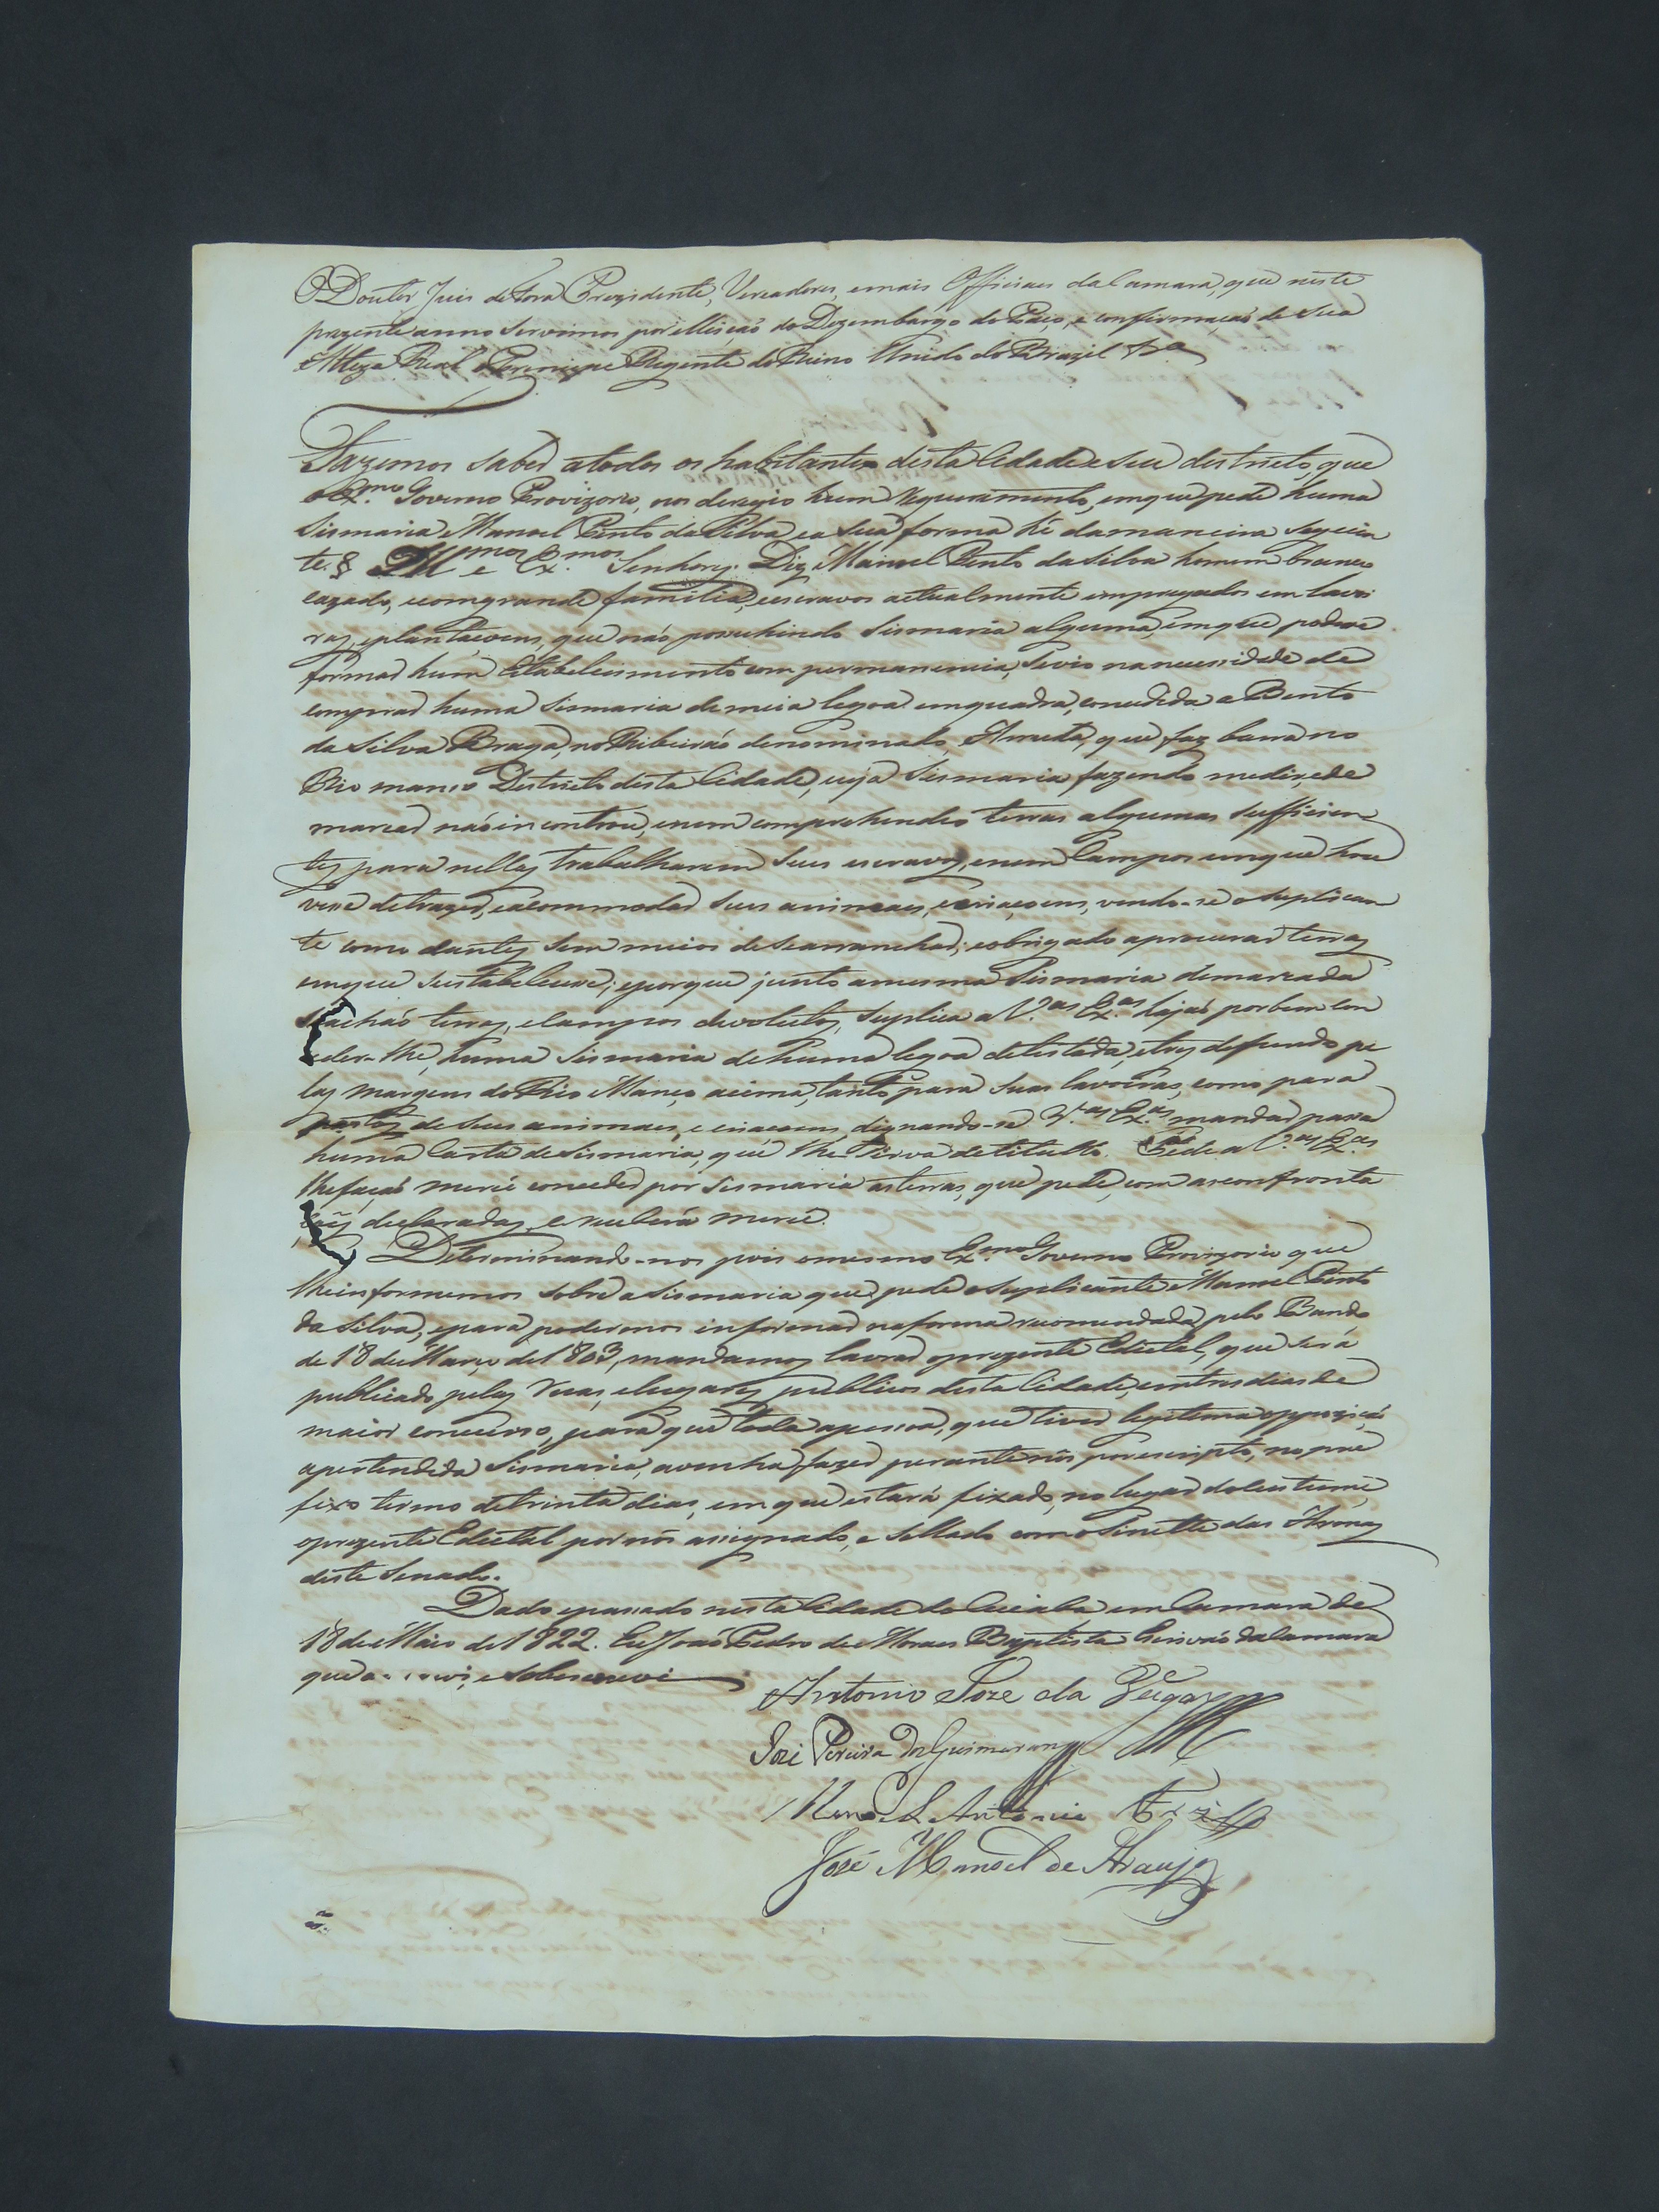 O Doutor Juis de Fora Prezidente, Vereadores, emais Officiaes da Camara, que neste
prezente anno servimos por elleição do Dezembargo do Paço, e confirmação de Sua
Alteza Real o Principe Regente do Reino Unido do Brazil
Fazemos saber atodos os habitantes desta Cidade e seu destricto, que
o Ex.mo Governo Provizorio, nos deregio hum requeremento, emque pede huma
Sismaria Manoel Pinto da Silva ea sua forma hé damaneira seguin
te. § Ill.mos e Ex.mos Senhores. Diz Manoel Pinto da Silva homem branco
cazado, ecomgrande familia, eescravos actualmente empregados em lavo
ras, eplantaçoens, que não possuhindo Sismaria alguma, emque podesse
formar hum Estabelecimento com permanencia, sevio nanecessidade de
comprar huma Sismaria demeia legoa emquadra, concedida a Bento
da Silva Braga, no Ribeirão denominado, Arruda, que faz barra no
Rio manso Destricto desta Cidade, cuja Sismaria fazendo medir, ede
marcar não incontrou, enem comprehendeo terras algumas sufficien
tes para nellas trabalharem seus escravos, enem Campos emque hou
vesse detrazer, eacommodar seus animaes, ecriaçoens, vendo-se o Suplican
te como dantes sem meios de searranchar; eobrigado aprocurar terras
emque sestabelecesse; eporque junto amesma Sismaria demarcada
seachão terras, eCampos devolutos, Suplica a V.as Ex.as hajão porbem con
ceder-lhe, huma Sismaria dehuma legoa detestada, etres defundo pe
las margens do Rio Manço acima, tanto para suas lavoiras, como para
pastos de seus animaes, e criaçoens, dignando-se V.as Ex.as mandar passar
huma Carta de Sismaria, que lhe Sirva detitullo. Pede a V.as Ex.as
lhefação mercê conceder por Sismaria asterras, que pede, com asconfronta
çoẽs declaradas. e recebera mercê.
Determinando-nos pois omesmo Ex.mo Governo Provizorio que
lheinformemos sobre a Sismaria que pede o Suplicante Manoel Pinto
da Silva, epara podermos informar naforma recomendada pelo Bando
de 18 de Março de 1803, mandamos lavrar oprezente Edictal, que será
publicado pelas Ruas, elugares publicos desta Cidade, emtres dias de
maior concurso, para que toda apessoa, que tiver legitima oppozição
apertendida Sismaria, avenha fazer perante nós porescripto, no pre
fixo termo detrinta dias, em que estará fixado, no lugar docustume,
oprezente Edictal por nós assignado, e sellado com o Sinette das Armas
deste Senado.
Dado epassado nesta Cidade do Cuiabá em Camara de
18 de Maio de 1822. Eu João Pedro de Moraes Baptista Escrivão da Camara
que o e sobescrevi
Antonio Joze da Veiga
José Pereira dos Guimaraens
Manoel Antonio
José Manoel de Araujo